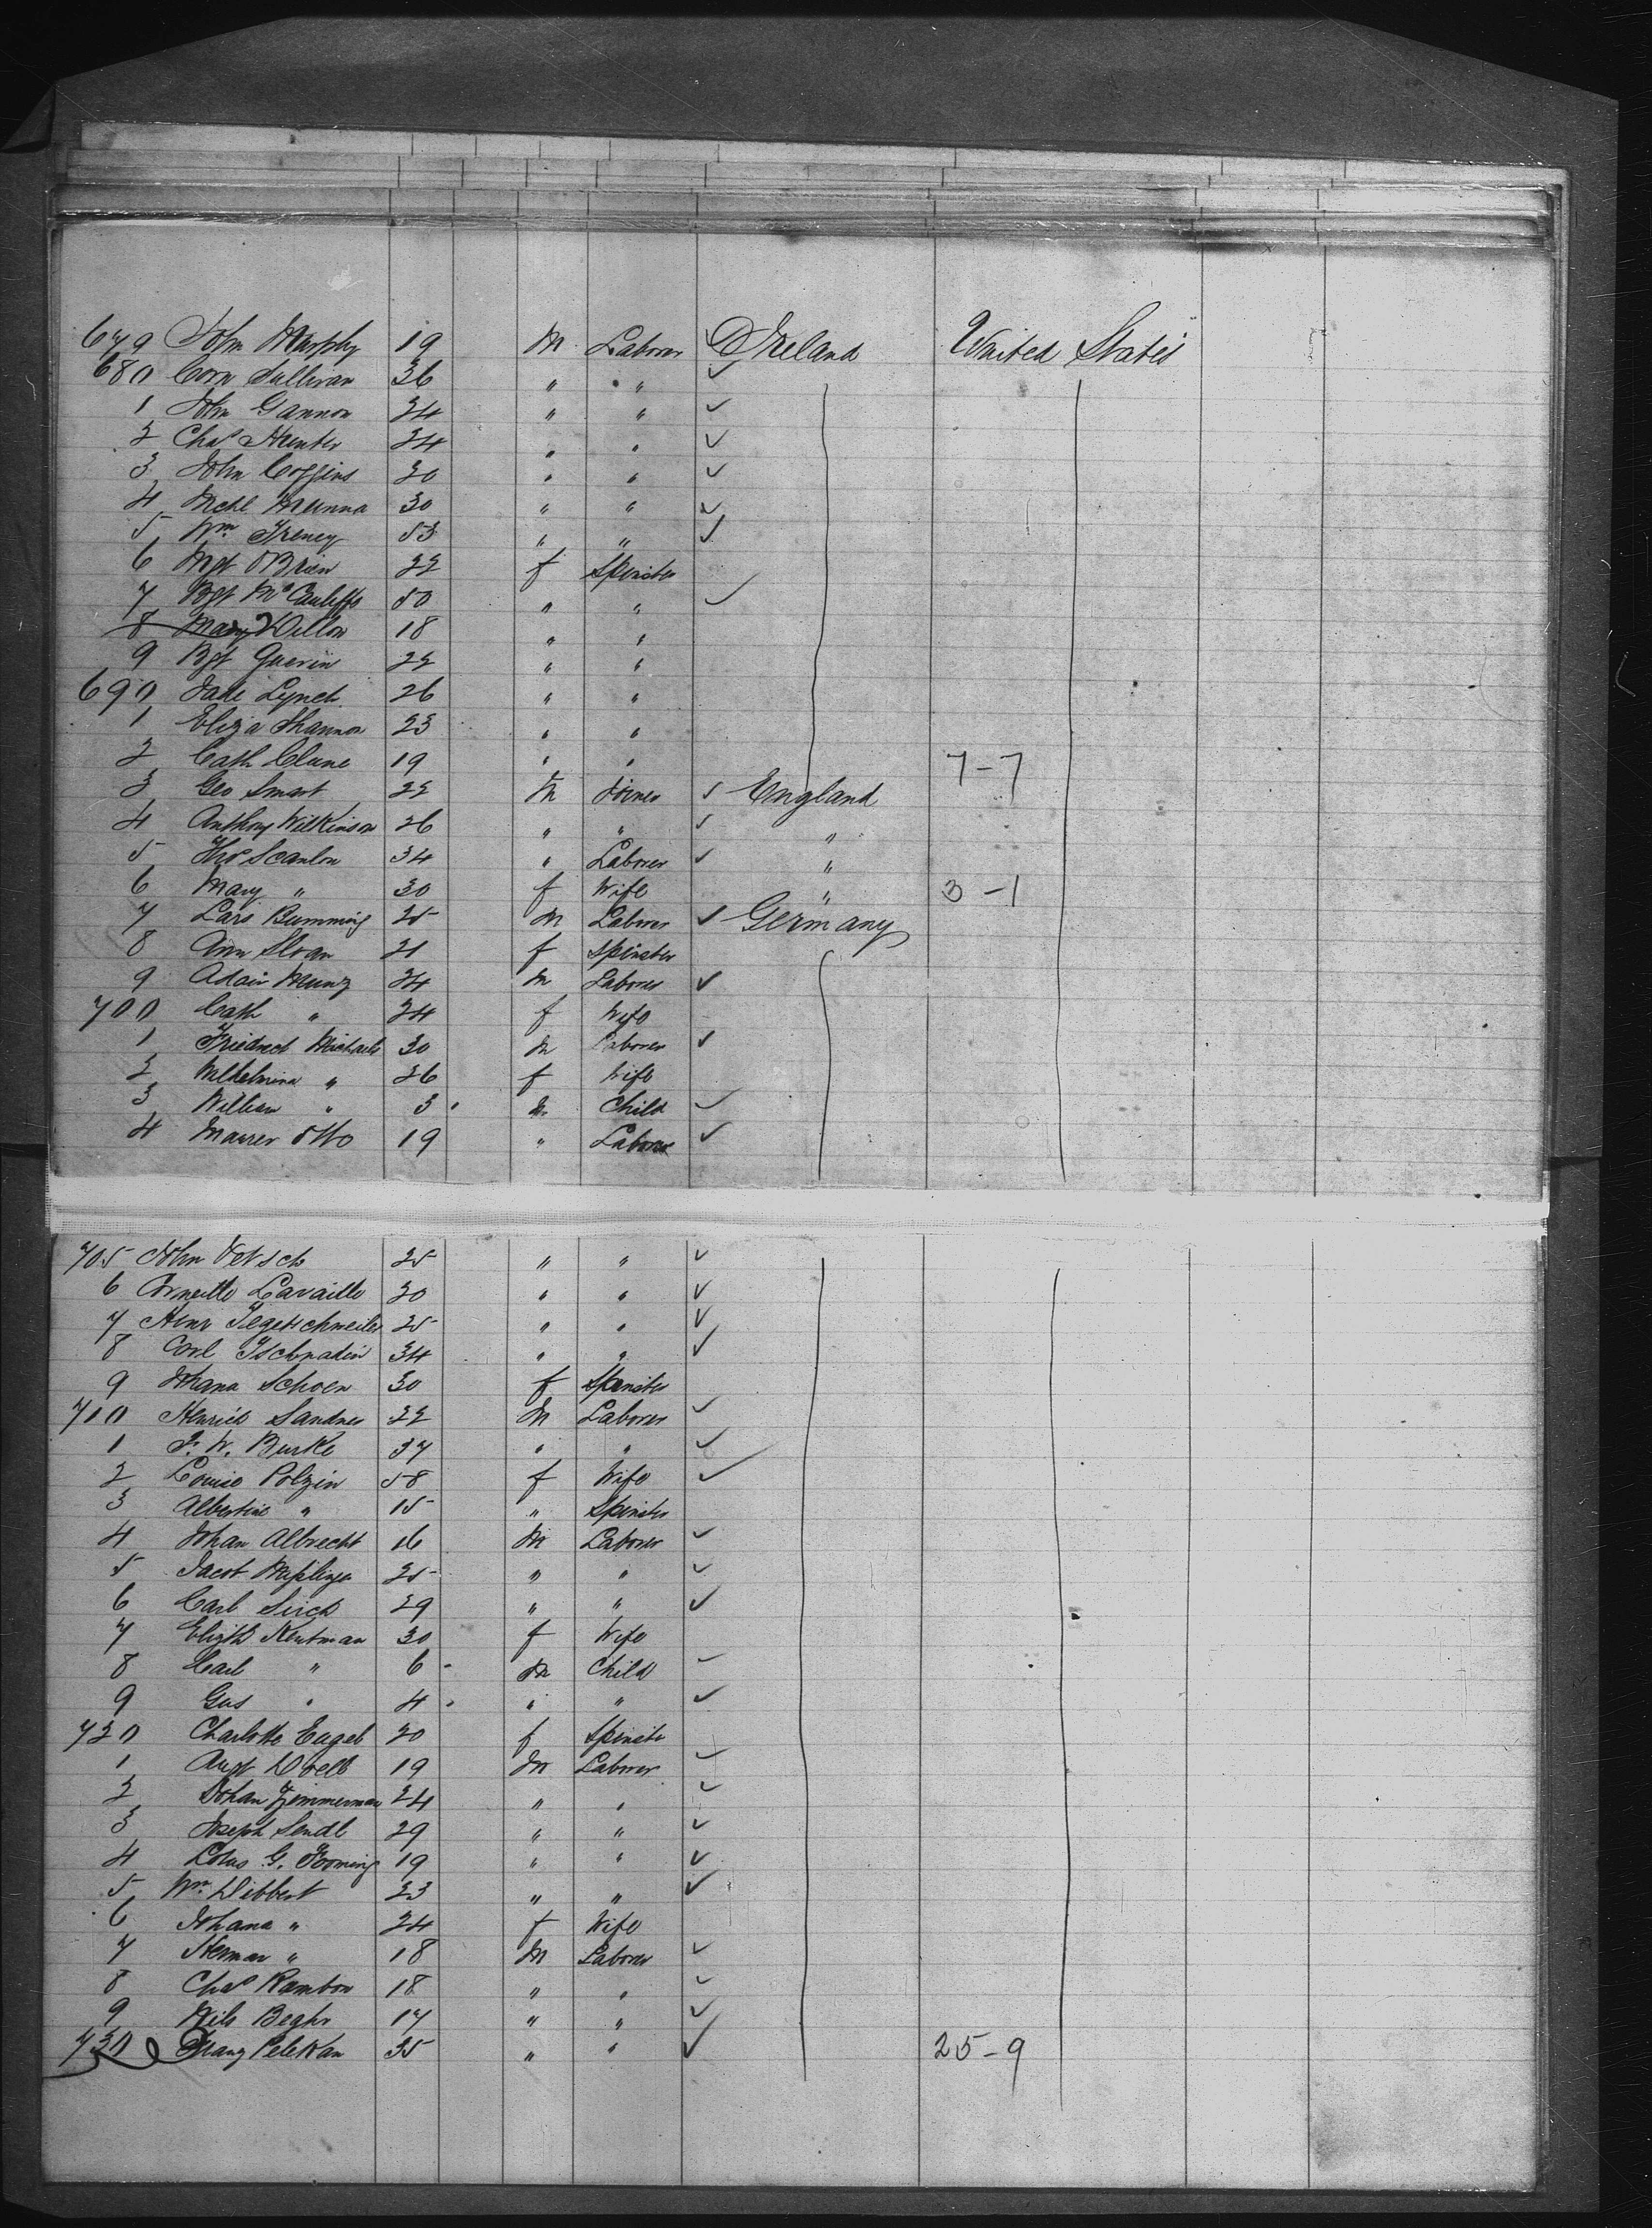 679 John Murphy 19 M Laborer Ireland United States
680 Corn Sullivan 36 " "
1 John Gannon 24 " "
2 Chas Hunter 24 " "
3 John Coggins 20 " "
4 Mchl 30 " "
5 Wm Treney 53 " "
6 Mgt OBrien 22 f Spinster
7 Bgt McCauliffe 50 " "
8 Mary Dillon 18 " "
9 Bgt Guerin 22 " "
690 Jane Lynch 26 " "
1 Eliza Shannon 23 " "
2 Cath Clune 19 " " 7-7
3 Geo Smart 22 M Joiner England
4 Anthony Wilkinson 26 " " "
5 Thos Scanlon 34 " Laborer "
6 Mary " 30 f Wife " 3-1
7 Lars Bumming 25 M Laborer Germany
8 Ann Sloan 21 f Spinster
9 Adam Munz 24 M Laborer
700 Cath " 24 f Wife
1 Friedrich Michaels 30 M Laborer
2 " 26 f Wife
3 William " 3 M Child
4 Maurer Otto 19 " Laborer
705 John 25 " "
6 Lavaille 20 " "
7 25 " "
8 Tschnadin 34 " "
9 Johana Schoen 30 f Spinster
710 Henrich Sandner 22 M Laborer
1 W. Burke 37 " "
2 Louise Polzin 58 f Wife
3 Albertine " 15 " Spinster
4 Johan Albrecht 16 M Laborer
5 Jacob 25 " "
6 Carl Sirch 29 " "
7 Elizth Kentman 30 f Wife
8 Carl " 6 M Child
9 Gus " 4 " "
720 Charlotte Eagel 20 f Spinster
1 Augt 19 M Laborer
2 Johan Zimmerman 24 " "
3 Joseph Sendl 29 " "
4 G. 19 " "
5 Wm Dibbert 23 " "
6 Johana " 24 f Wife
7 Herman " 18 M Laborer
8 Chas Rambow 18 " "
9 Nils Beghr 17 " "
730 Franz Pelekan 35 " " 25-9